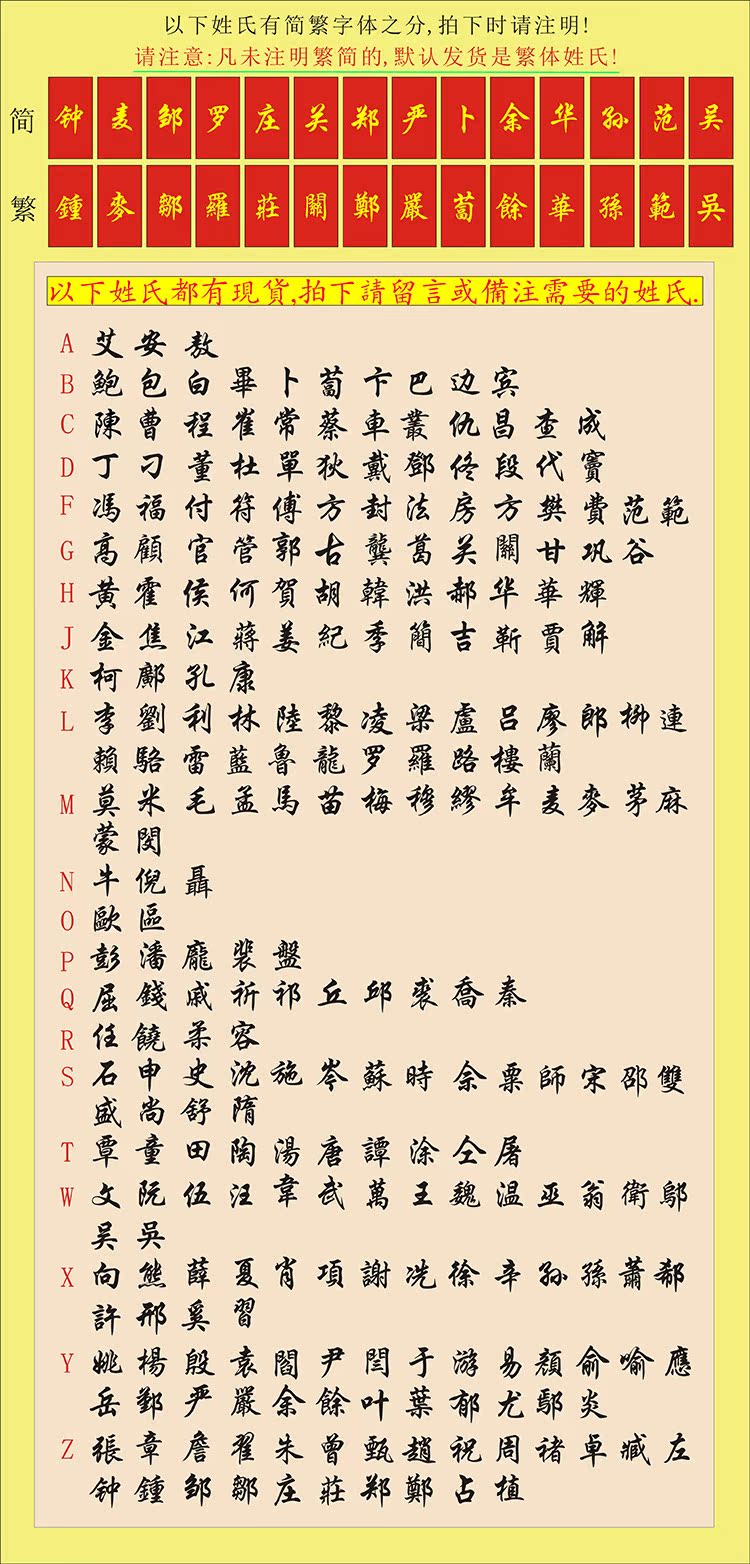 以下姓氏有简繁字体之分,拍下时请注明!
请注意:凡未注明繁简的,默认发货是繁体姓氏!
简 钟 麦 邹 罗 庄 关 郑 严 卜 余 华 孙 范 吴
繁 鍾 麥 鄒 羅 莊 關 鄭 嚴 蔔 餘 華 孫 範 吳
以下姓氏都有現貨,拍下請留言或備注需要的姓氏.
A 艾 安 敖
B 鮑 包 白 畢 卜 蔔 卞 巴 边 宾
C 陳 曹 程 崔 常 蔡 車 叢 仇 昌 查 成
D 丁 刁 董 杜 單 狄 戴 鄧 佟 段 代 竇
F 馮 福 付 符 傅 方 封 法 房 方 樊 費 范 範
G 高 顧 官 管 郭 古 龔 葛 关 關 甘 巩 谷
H 黄 霍 侯 何 賀 胡 韓 洪 郝 华 華 輝
J 金 焦 江 蔣 姜 紀 季 簡 吉 靳 賈 解
K 柯 鄺 孔 康
L 李 劉 利 林 陸 黎 凌 梁 盧 吕 廖 郎 柳 連
賴 駱 雷 藍 魯 龍 罗 羅 路 樓 蘭
M 莫 米 毛 孟 馬 苗 梅 穆 繆 牟 麦 麥 茅 麻
蒙 閔
N 牛 倪 聶
O 歐 區
P 彭 潘 龐 裴 盤
Q 屈 錢 戚 祈 祁 丘 邱 裘 喬 秦
R 任 饒 柔 容
S 石 申 史 沈 施 岑 蘇 時 佘 粟 師 宋 邵 雙
盛 尚 舒 隋
T 覃 童 田 陶 湯 唐 譚 涂 仝 屠
W 文 阮 伍 汪 韋 武 萬 王 魏 温 巫 翁 衛 鄔
吴 吳
X 向 熊 薛 夏 肖 項 謝 冼 徐 辛 孙 孫 蕭 郗
許 邢 奚 習
Y 姚 楊 殷 袁 閻 尹 閆 于 游 易 顏 俞 喻 應
岳 鄞 严 嚴 余 餘 叶 葉 郁 尤 鄢 炎
Z 張 章 詹 翟 朱 曾 甄 趙 祝 周 褚 卓 臧 左
钟 鍾 邹 鄒 庄 莊 郑 鄭 占 植